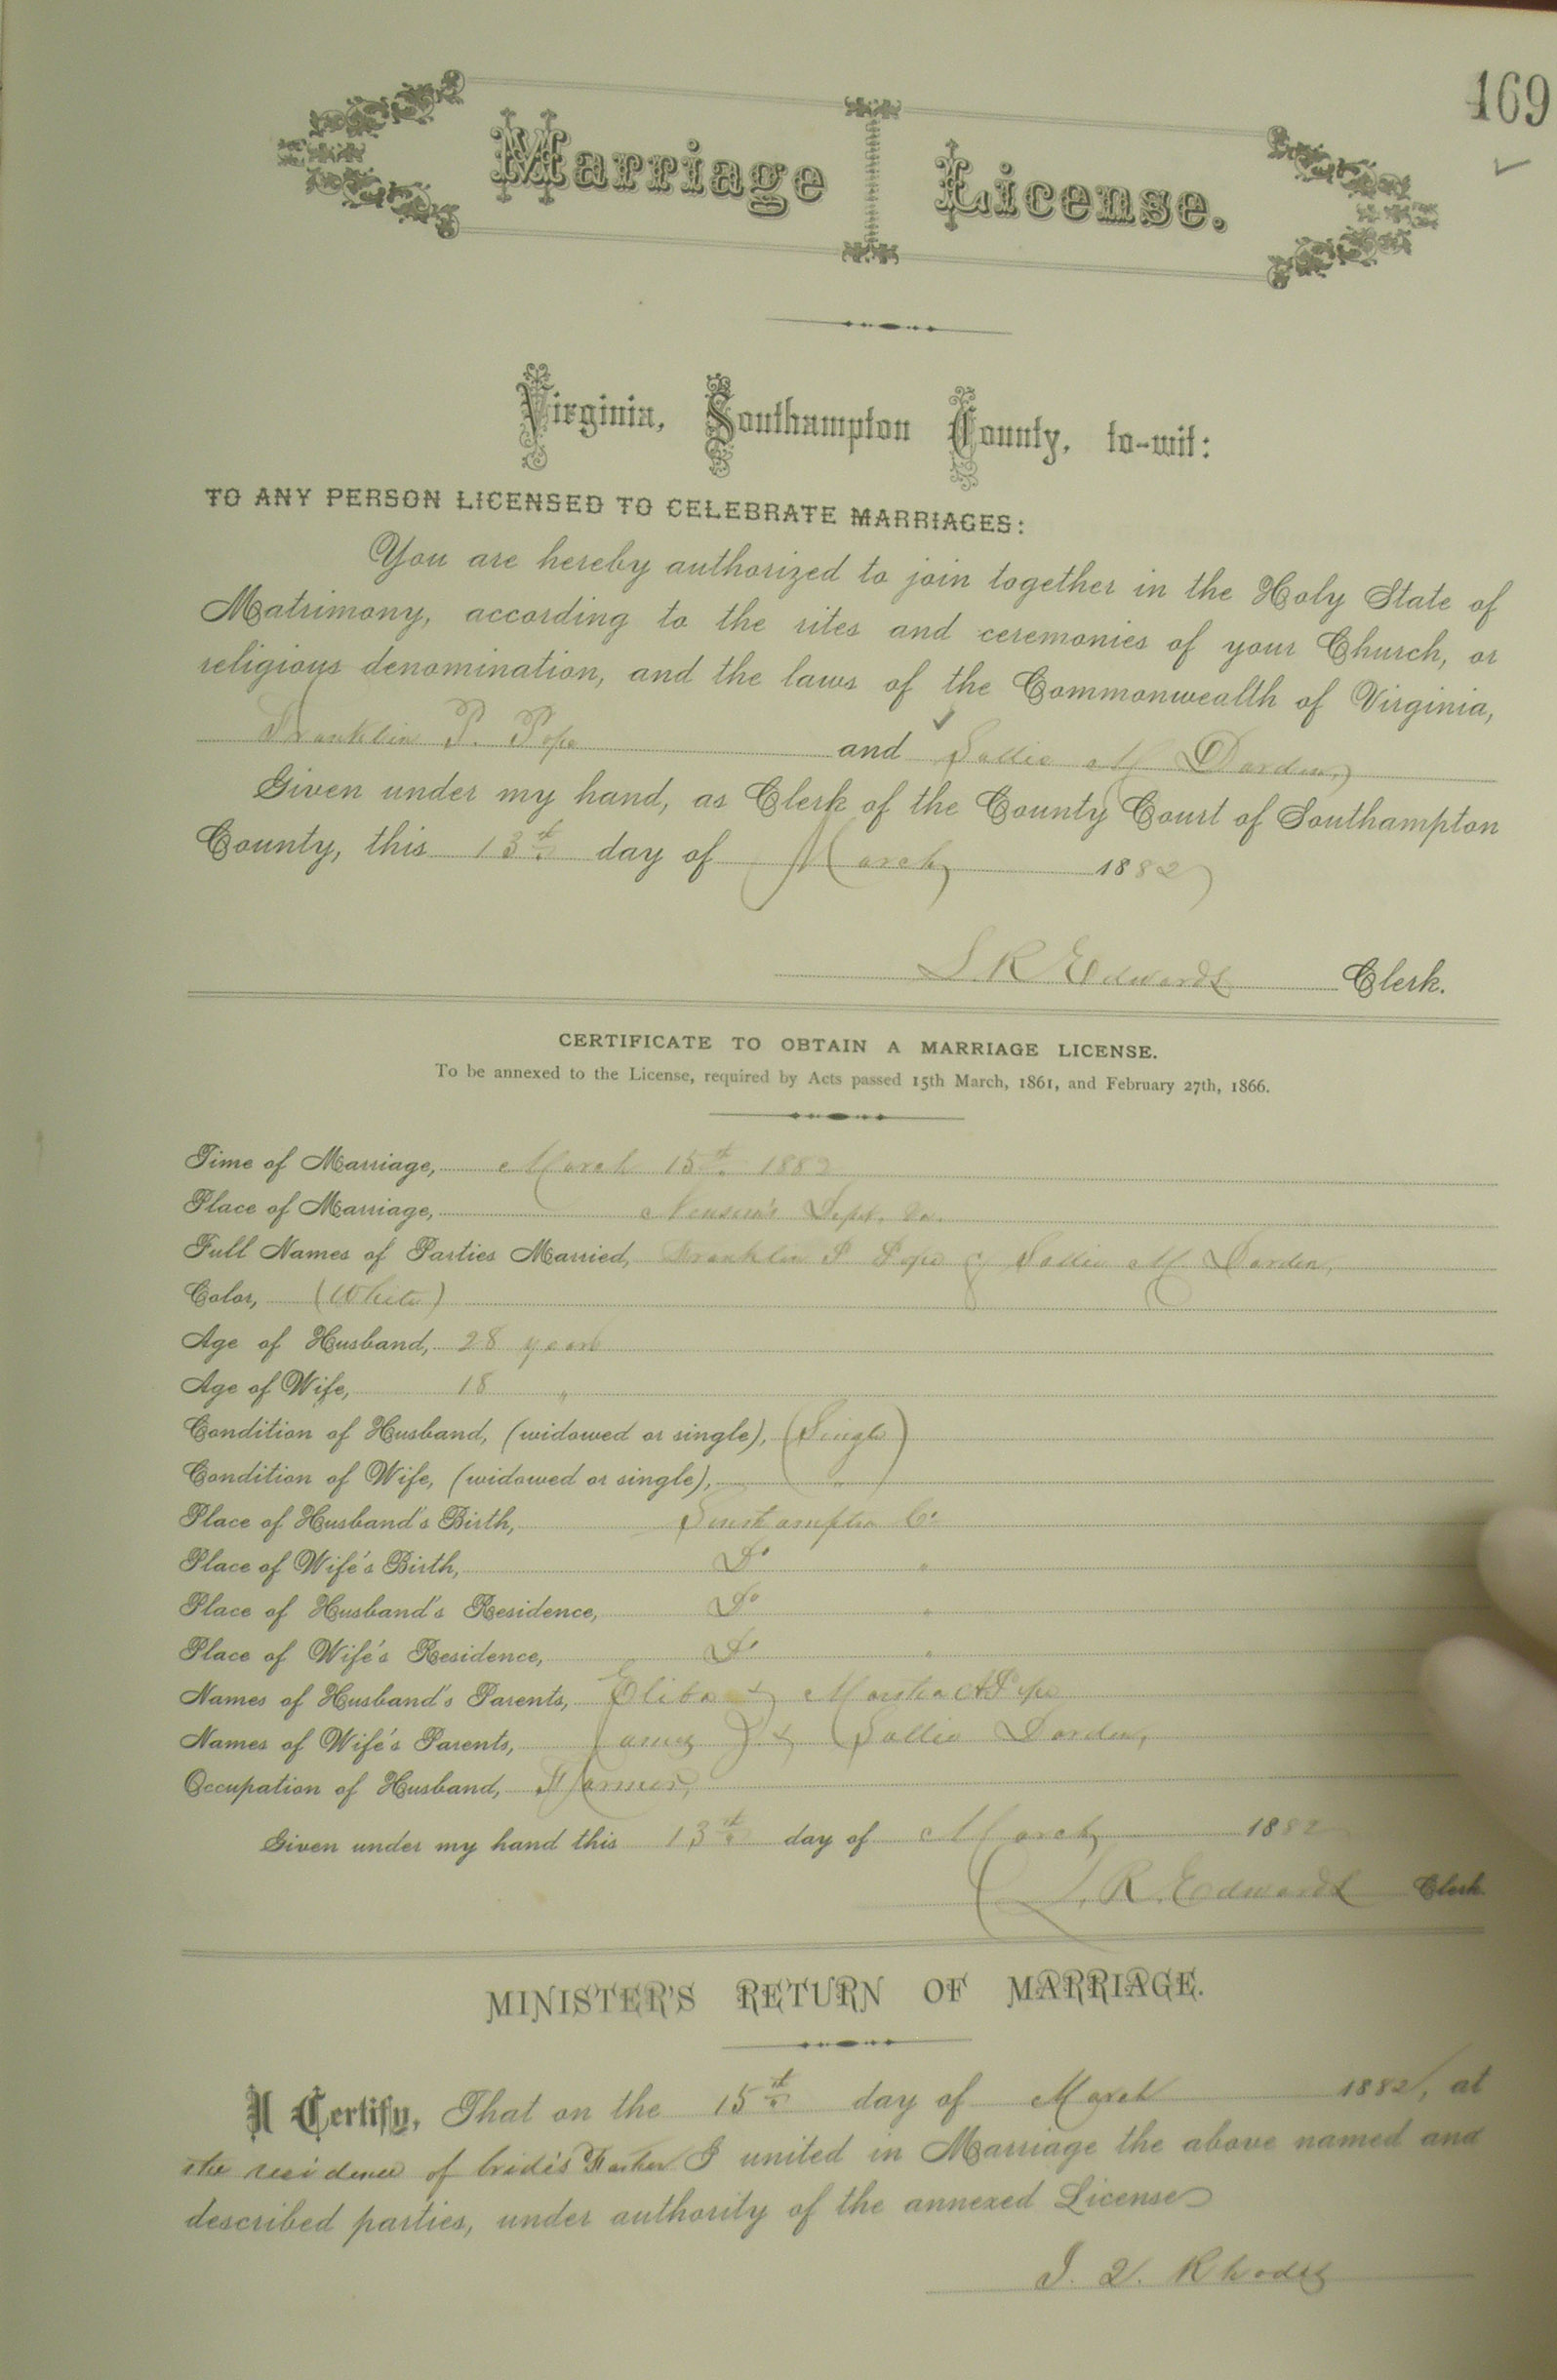 169
Marriage License.
Virginia, Southampton County, to-wit:
TO ANY PERSON LICENSED TO CELEBRATE MARRIAGES:
You are hereby authorized to join together in the Holy State of
Matrimony, according to the rites and ceremonies of your Church, or
religious denomination, and the laws of the Commonwealth of Virginia,
Franklin P. Pope and Sallie M Darden,
Given under my hand, as Clerk of the County Court of Southampton
County, this 13th day of March 1882
L. R. Edwards Clerk.
CERTIFICATE TO OBTAIN A MARRIAGE LICENSE.
To be annexed to the License, required by Acts passed 15th March, 1861, and February 27th, 1866.
Time of Marriage, March 15th 1882
Place of Marriage, Newsom's Depot. Va.
Full Names of Parties Married, Franklin P Pope & Sallie M Darden,
Color, (White)
Age of Husband, 28 years
Age of Wife, 18 "
Condition of Husband, (widowed or single), (Single)
Condition of Wife, (widowed or single), "
Place of Husband's Birth, Southampton Co
Place of Wife's Birth, Do "
Place of Husband's Residence, Do "
Place of Wife's Residence, Do "
Names of Husband's Parents, & Pope
Names of Wife's Parents, James D. & Sallie Darden,
Occupation of Husband, Farmer,
Given under my hand this 13th day of March 1882
L. R. Edwards Clerk.
MINISTER'S RETURN OF MARRIAGE.
I Certify, That on the 15th day of March 1882, at
the residence of bride's Father I united in Marriage the above named and
described parties, under authority of the annexed License
Rhodes